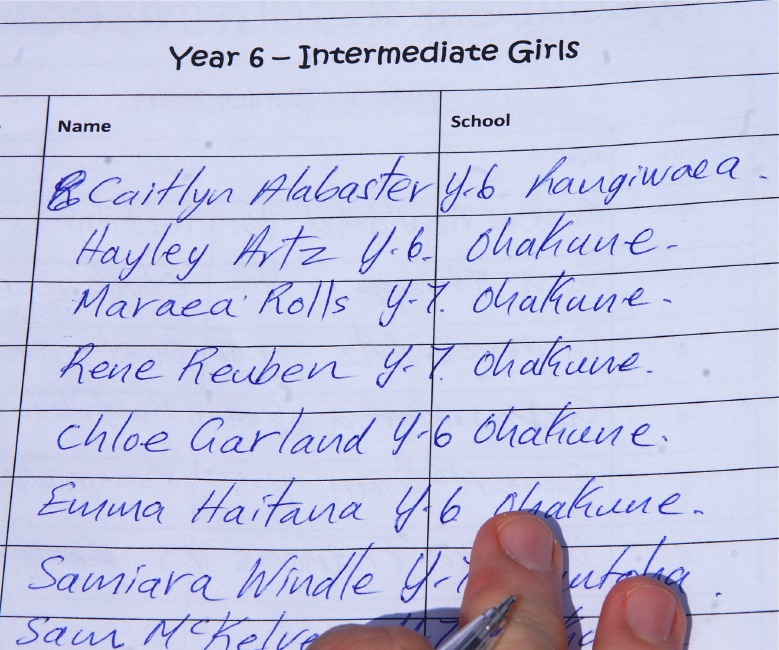 Year 6 – Intermediate Girls
Name School
Caitlyn Alabaster Y-6 Rangiwaea.
Hayley Artz Y-6. Ohakune.
Maraea Rolls Y-7. Ohakune.
Rene Reuben Y-7. Ohakune.
Chloe Garland Y-6 Ohakune.
Emma Haitana Y-6 Ohakune.
Samiara Windle Y-7
Sam